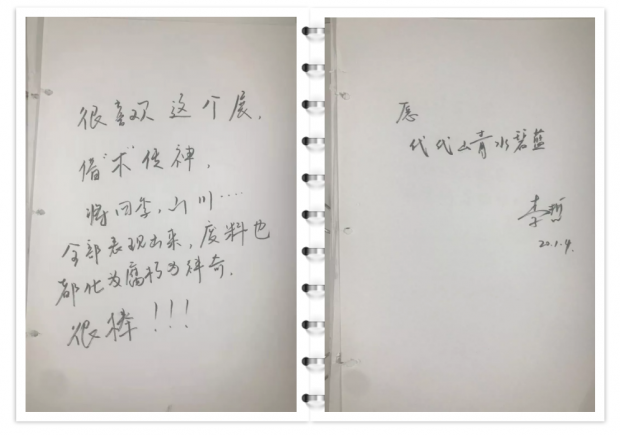 很喜欢这个展.
借“木”传神.
将四季,山川····
全部表现出来,废料也
都化为腐朽为神奇.
很棒!!!
愿
代代山青水碧蓝
李哲
20.1.9.